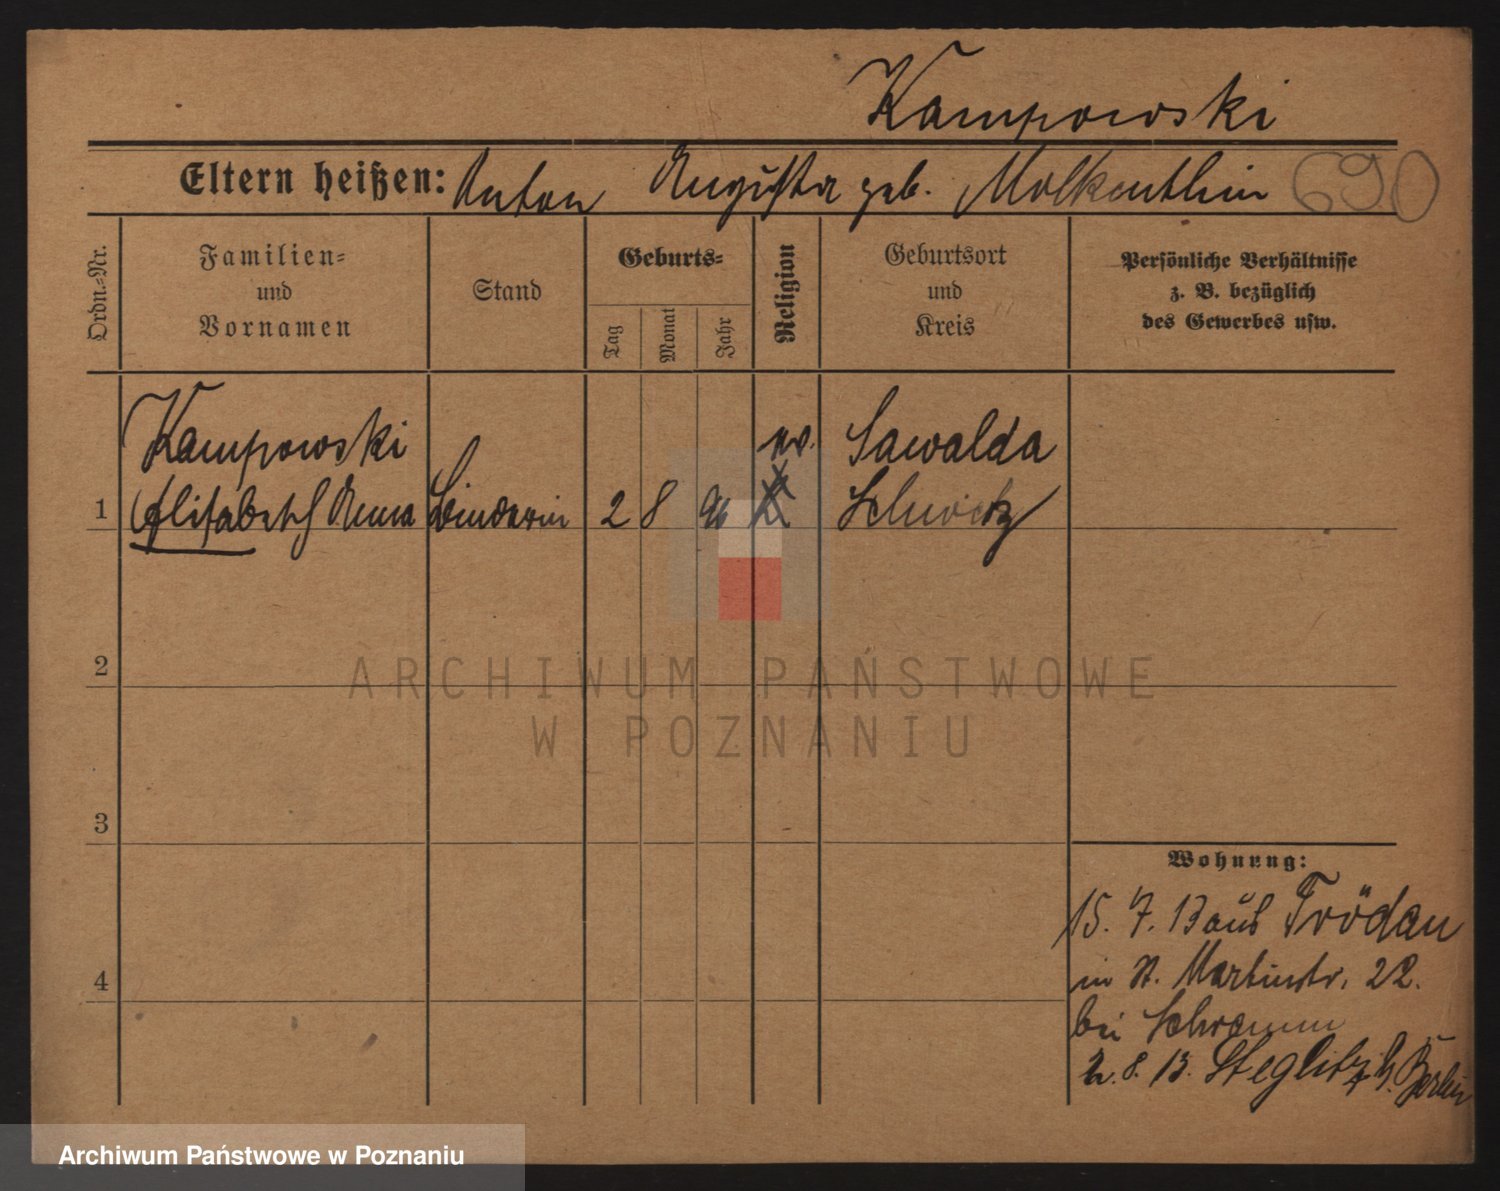 Kampowski
Eltern heißen: Anton Augusta geb. Molkenthin 690
Ordn.-Nr.
Familien-
und
Vornamen
Stand
Geburts-
Tag
Monat
Jahr
Religion
Geburtsort
und
Kreis
Persönliche Verhältnisse
z. B. bezüglich
des Gewerbes usw.
Kampowski ev. Sawalda
1 Elisabeth Anna Binderin 2 8 96 K
2
ARCHIWUM PAŃSTWOWE
W POZNANIU
3
Wohnung:
15. 7. 13 aus
4
in St. Martinstr. 22.
bei Schramm
2. 8. 13. Steglitz b. Berlin
Archiwum Państwowe w Poznaniu